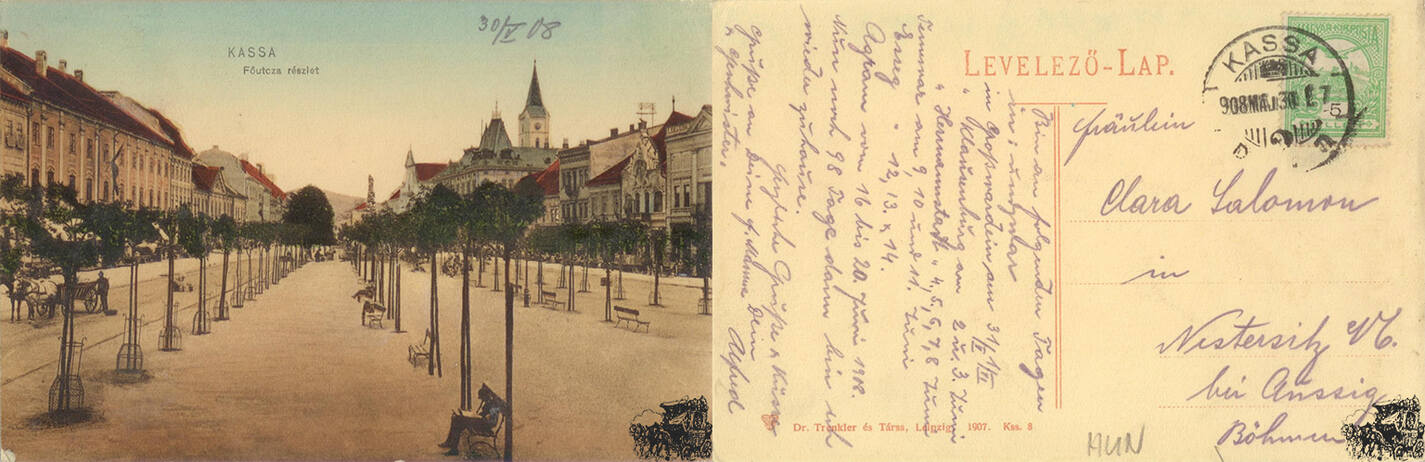 30/V 08
KASSA
Főutcza részlet
LEVELEZŐ-LAP.
MAGYAR KIR. POSTA
5
KASSA
908 MÁJ. 30
Fräulein
Clara Salomon
in
Nestersitz
bei Aussig
Böhmen
Bin an folgenden Tagen
in Ungarn
in Großwardein am 31/V 1/VI
" Klausenburg am 2 u. 3. Juni
" Hermannstadt " 4, 5, 6, 7, 8 Juni
Temesvar am 9, 10 und 11. Juni
" 12, 13. u 14.
Agram vom 16 bis 20. Juni 1908.
Nun noch 98 Tage dann bin ich
wieder zuhause.
Herzliche Grüße u. Küsse
Grüße an Deine g. Mama Dein
u Geschwister. Alfred
Dr. Trenkler és Társa, Leipzig. 1907. Kss. 8
HUN